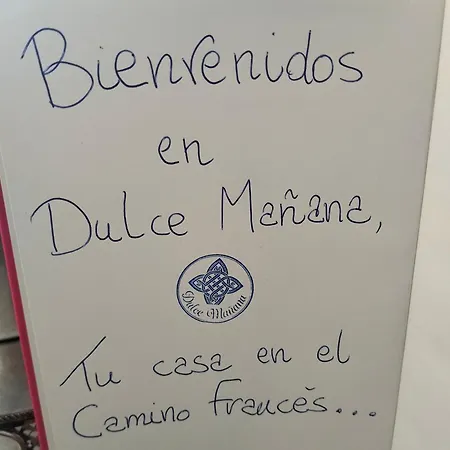 Bienvenidos
en
Dulce Mañana,
Dulce Mañana
Tu casa en el
Camino Francés...